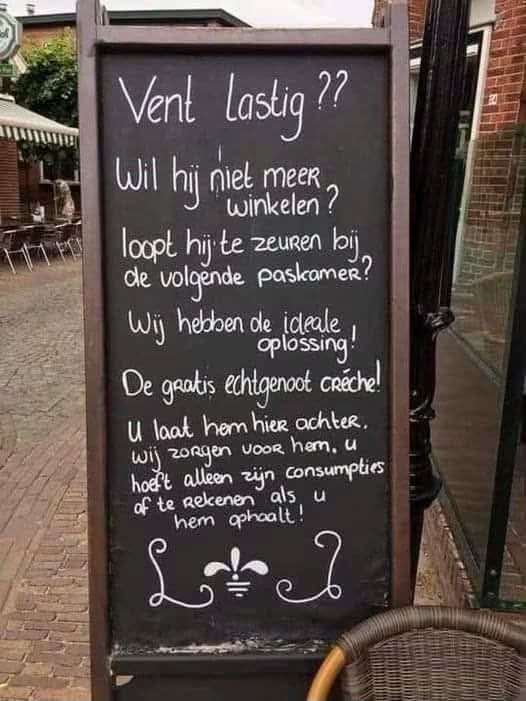 Vent lastig ??
Wil hij niet meer
winkelen ?
loopt hij te zeuren bij
de volgende paskamer?
Wij hebben de ideale
oplossing!
De gratis echtgenoot crèche!
U laat hem hier achter.
wij zorgen voor hem. u
hoeft alleen zijn consumpties
af te rekenen als u
hem ophaalt!